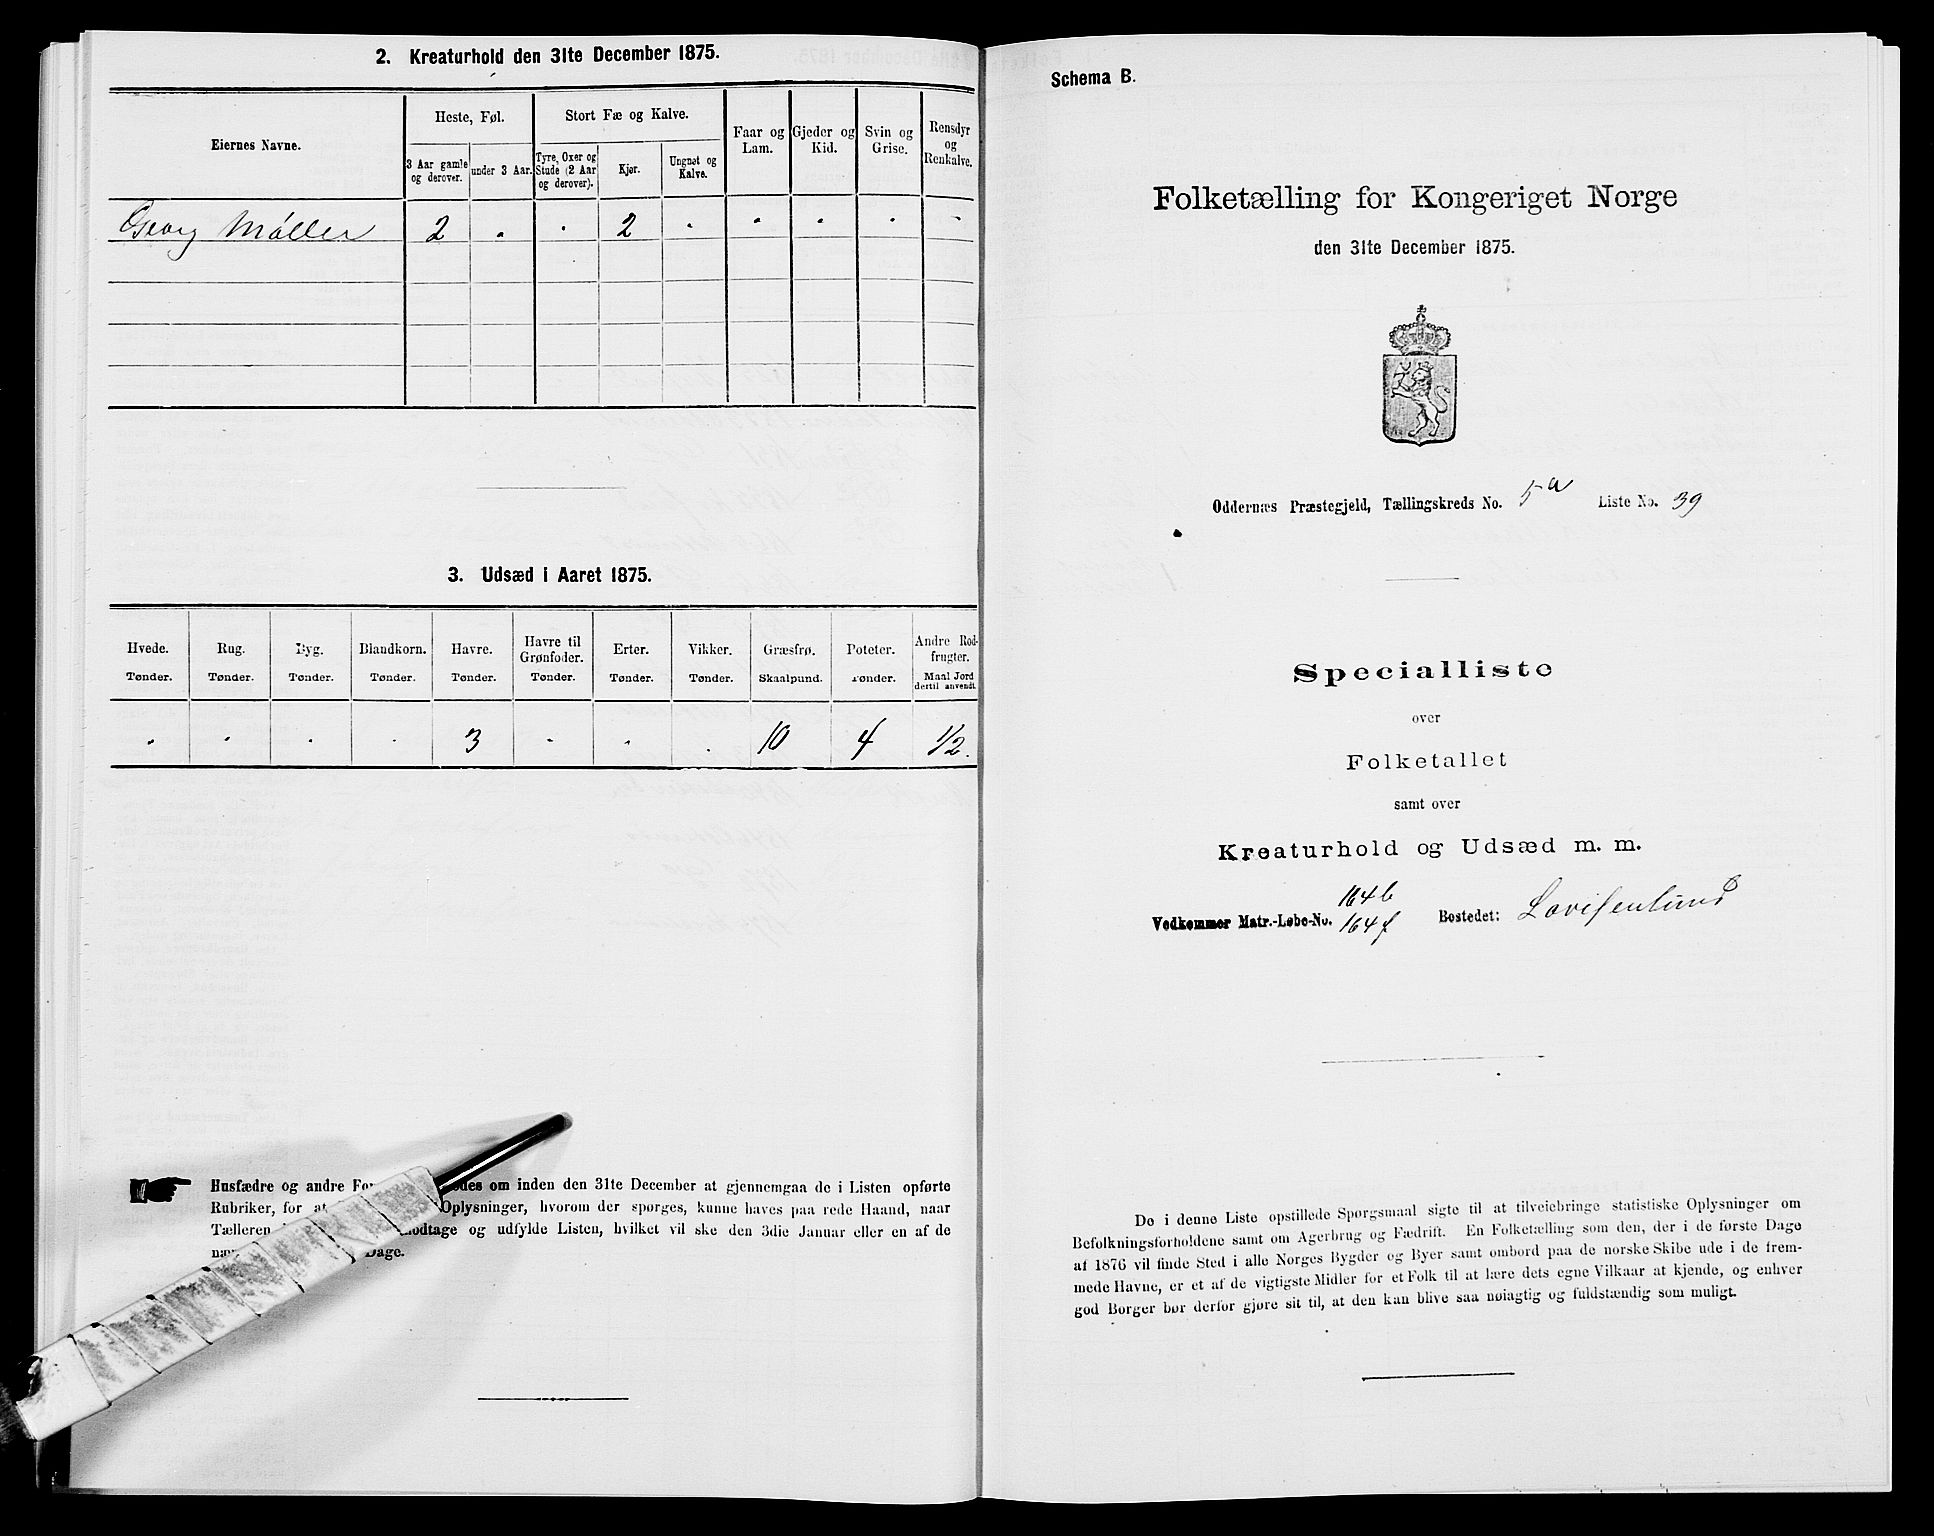 2. Kreaturhold den 31te December 1875.
Eiernes Navne.
Heste, Føl.
Stort Fæ og Kalve.
Faar og Lam.
Gjeder og Kid.
Svin og Grise.
Rensdyr og Renkalve.
3 Aar gamle og derover.
under 3 Aar.
Tyre, Oxer og Stude (2 Aar og derover).
Kjør.
Ungnøt og Kalve.
Georg Møller 2 " " 2 " " " " "
3. Udsæd i Aaret 1875.
Hvede. Rug. Byg. Blandkorn. Havre. Havre til Grønfoder. Erter. Vikker. Græsfrø. Poteter. Andre Rodfrugter.
Tønder. Tønder. Tønder. Tønder. Tønder. Tønder. Tønder. Tønder. Skaalpund. Tønder. Maal Jord dertil anvendt.
" " " " 3 " " " 10 4 1/2.
Husfædre og andre For des om inden den 31te December at gjennemgaa de i Listen opførte
Rubriker, for at Oplysninger, hvorom der spørges, kunne haves paa rede Haand, naar
Tælleren modtage og udfylde Listen, hvilket vil ske den 3die Januar eller en af de
Dage.
Schema B.
Folketælling for Kongeriget Norge
den 31te December 1875.
Oddernæs Præstegjeld, Tællingskreds No. 5a Liste No. 39
Specialliste
over
Folketallet
samt over
Kreaturhold og Udsæd m. m.
164b
Vedkommer Matr.-Løbe-No. 164f Bostedet: Lovisenlund
De i denne Liste opstillede Spørgsmaal sigte til at tilveiebringe statistiske Oplysninger om
Befolkningsforholdene samt om Agerbrug og Fædrift. En Folketælling som den, der i de første Dage
af 1876 vil finde Sted i alle Norges Bygder og Byer samt ombord paa de norske Skibe ude i de frem-
mede Havne, er et af de vigtigste Midler for et Folk til at lære dets egne Vilkaar at kjende, og enhver
god Borger bør derfor gjøre sit til, at den kan blive saa nøiagtig og fuldstændig som muligt.